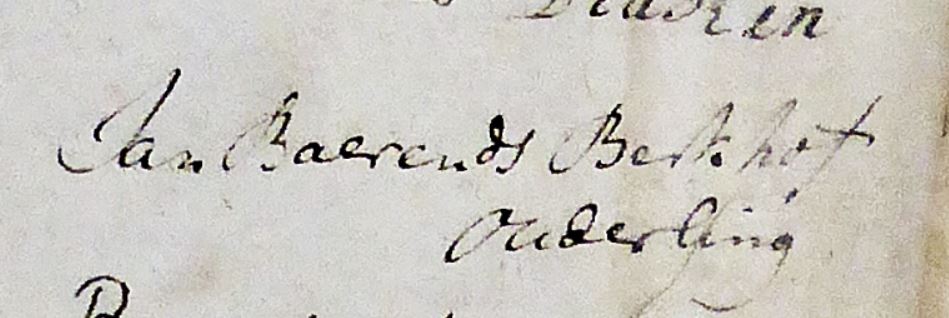 Diaken
Jan Baerends Berkhof
Ouderling